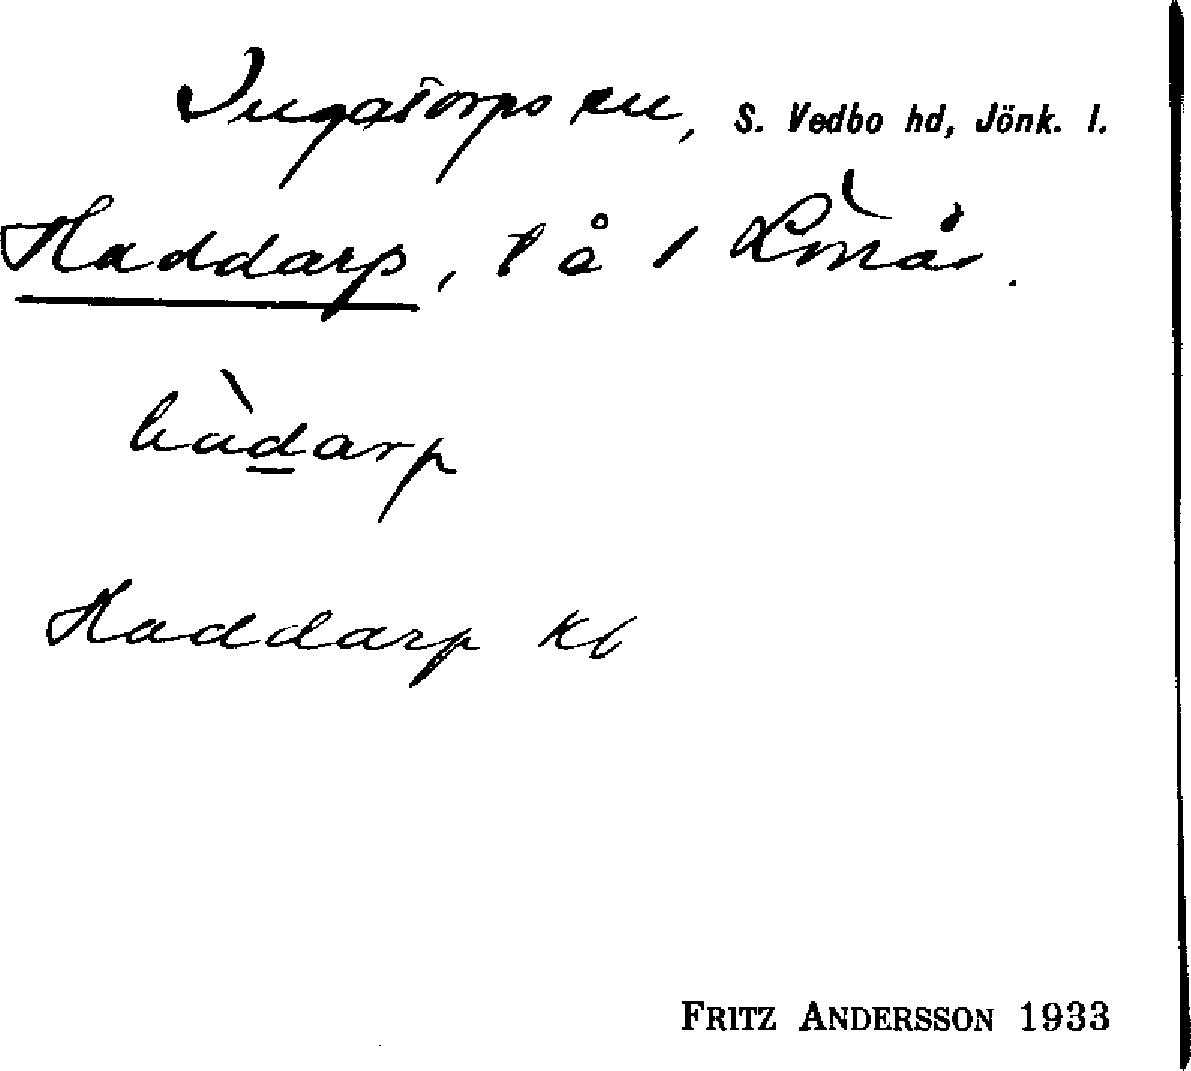 Ingatorps sn, S. Vedbo hd, Jönk. l.
Haddarp, l å 1
hàdarp
Haddarp kb
FRITZ ANDERSSON 1933